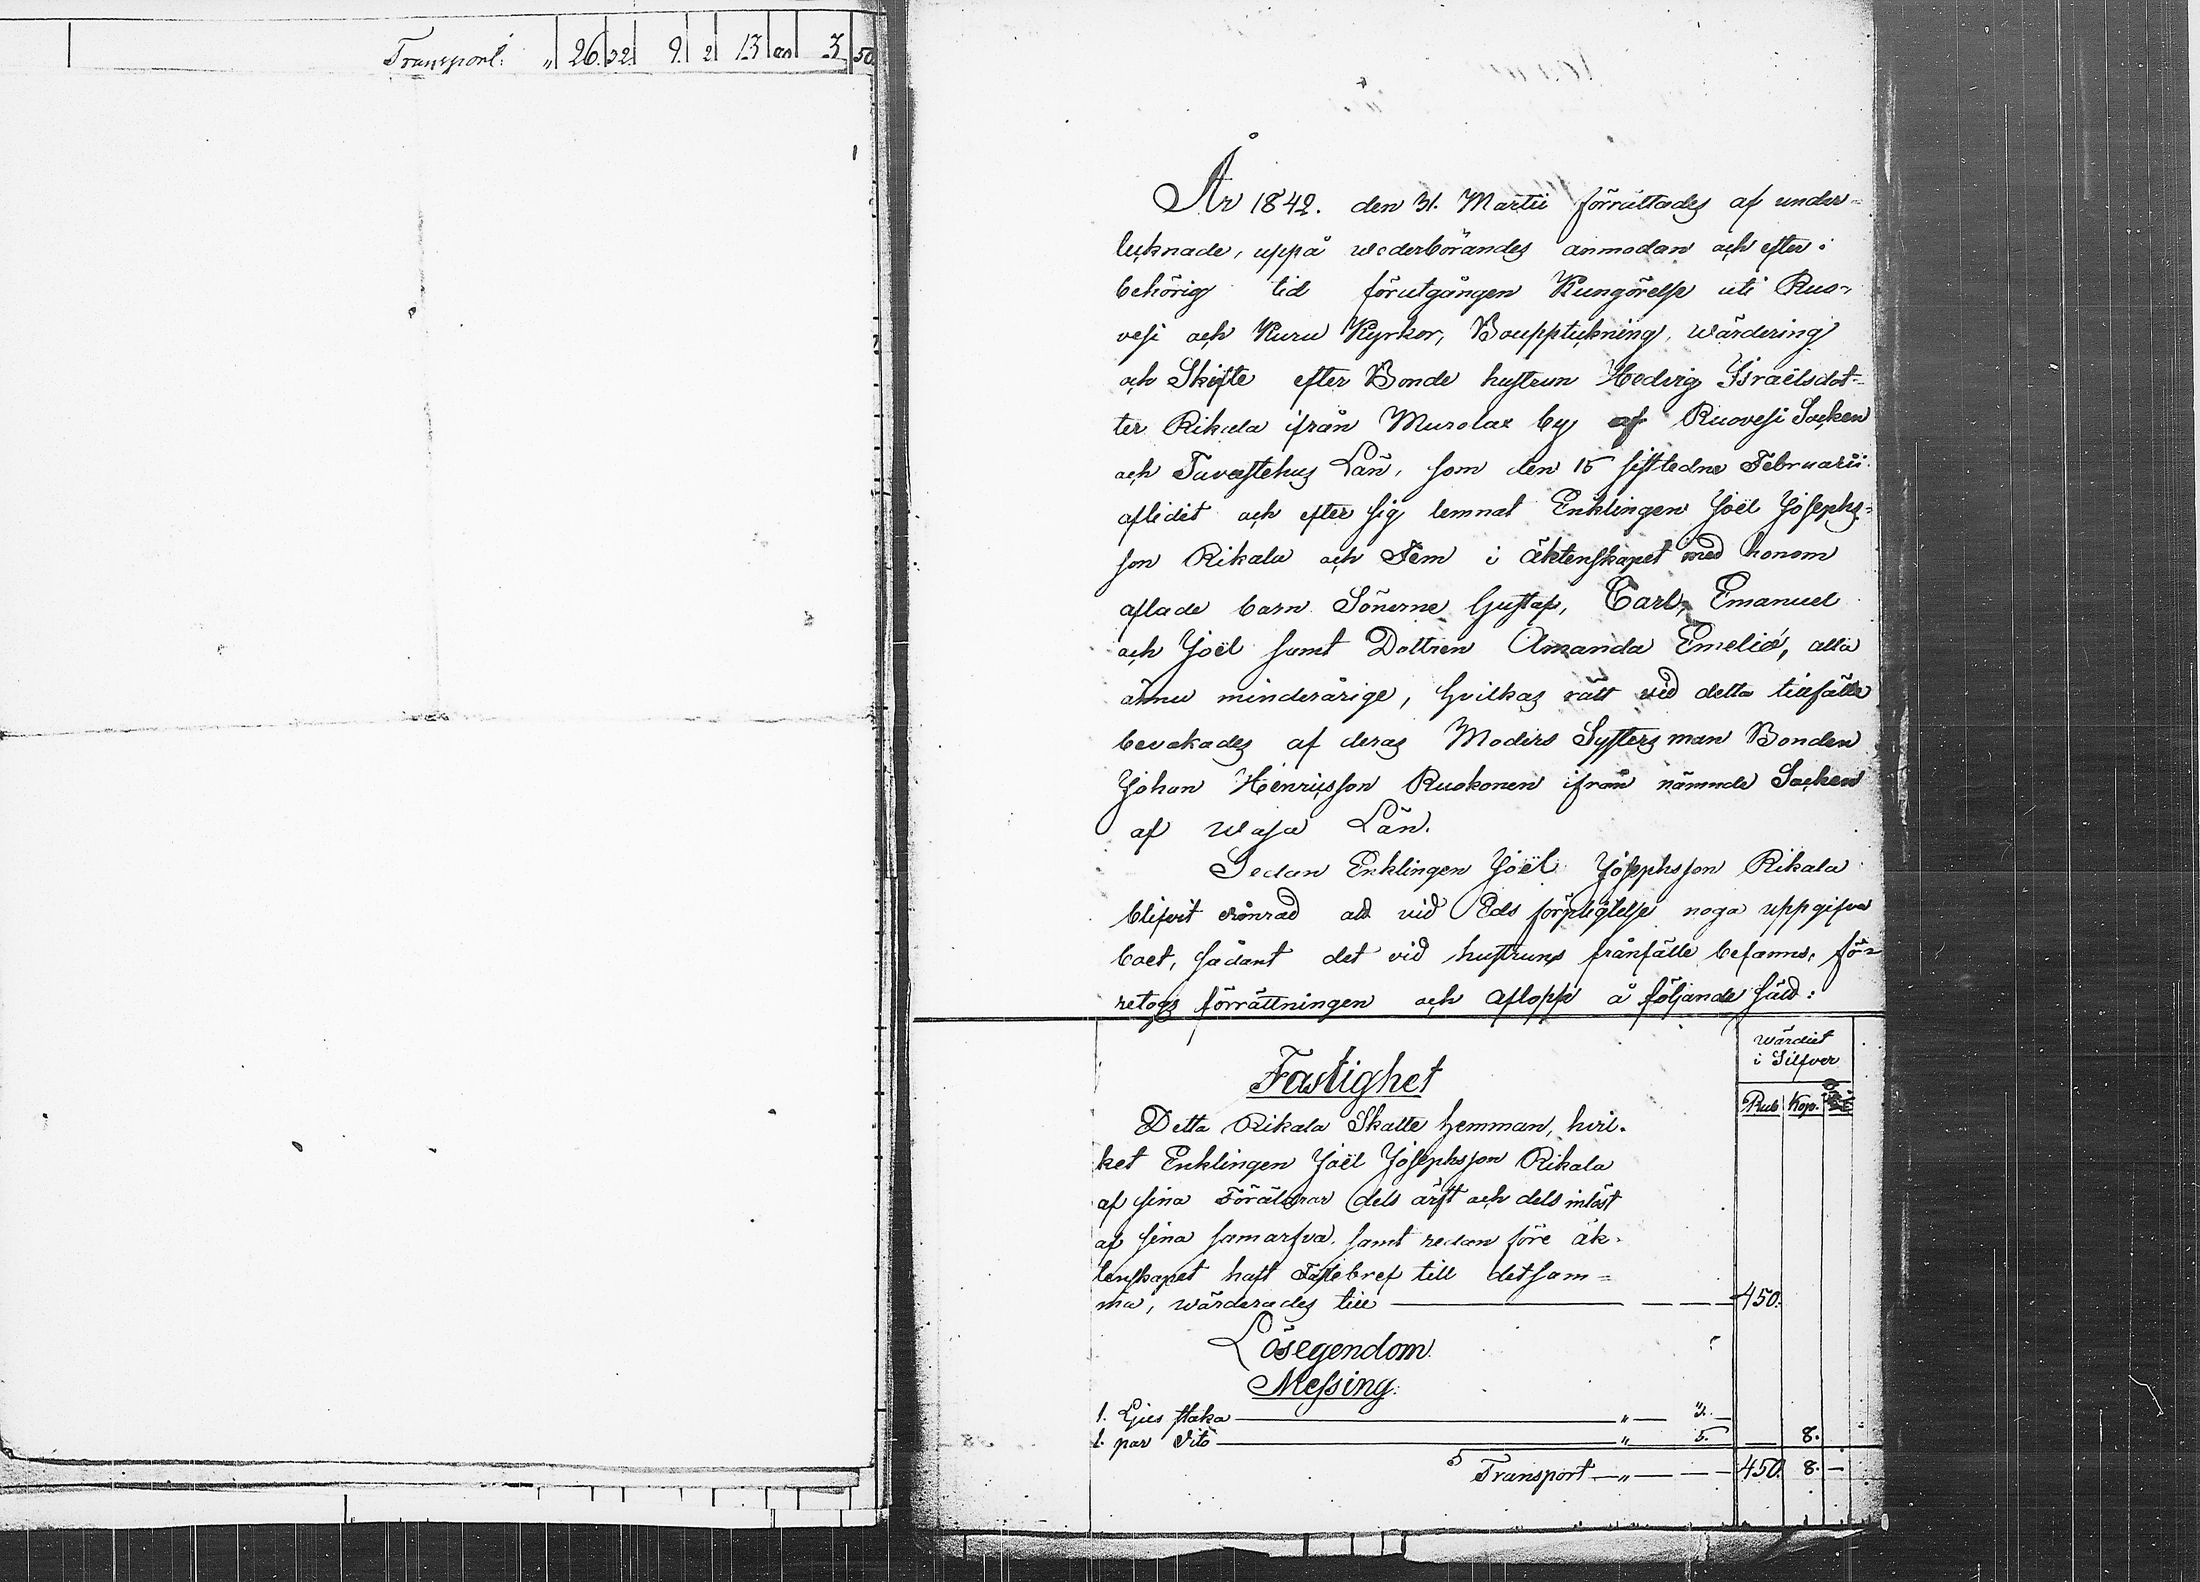 Transport: " 26 32 9. 2 13 3 50
År 1842. den 31. Martii förrättades af under-
tecknade, uppå wederbörandes anmodan och efter i
behörig tid förutgången Kungörelse uti Ruo-
vesi och Kuru Kyrkor, Bouppteckning, wärdering
och Skifte efter Bonde hustrun Hedvig Israëlsdot-
ter Rikala ifrån Murolax by af Ruovesi Socken
och Tavastehus Län, som den 15 sistledne Februarii
aflidit och efter sig lemnat Enklingen Joël Josephs-
son Rikala och Fem i äktenskapet med honom
aflade barn Sönerne Gustaf, Carl, Emanuel
och Joël samt Dottren Amanda Emelia, alla
ännu minderårige, hvilkas rätt vid detta tillfälle
bevakades af deras Moders Systers man Bonden
Johan Henricsson Ruokonen ifrån nämnde Socken
af Wasa Län.
Sedan Enklingen Joël Josephsson Rikala
blifvit erinrad att vid Eds förpligtelse noga uppgifva
boet, sådant det vid hustruns frånfälle befanns, fö-
retogs förrättningen och aflopp å följande sätt:
wärdiet
i Silfver
Rub Kop.
Fastighet
Detta Rikala Skatte hemman, hvil-
ket Enklingen Joël Josephsson Rikala
af sina Föräldrar dels ärft och dels inlöst
af sina samarfva, samt redan före äk-
tenskapet haft Fastebref till detsam-
ma, wärderades till 450.
Lösegendom.
Messing.
1. Ljus staka " 3.
1. par Dito " 5. 8.
Transport " 450. 8. -